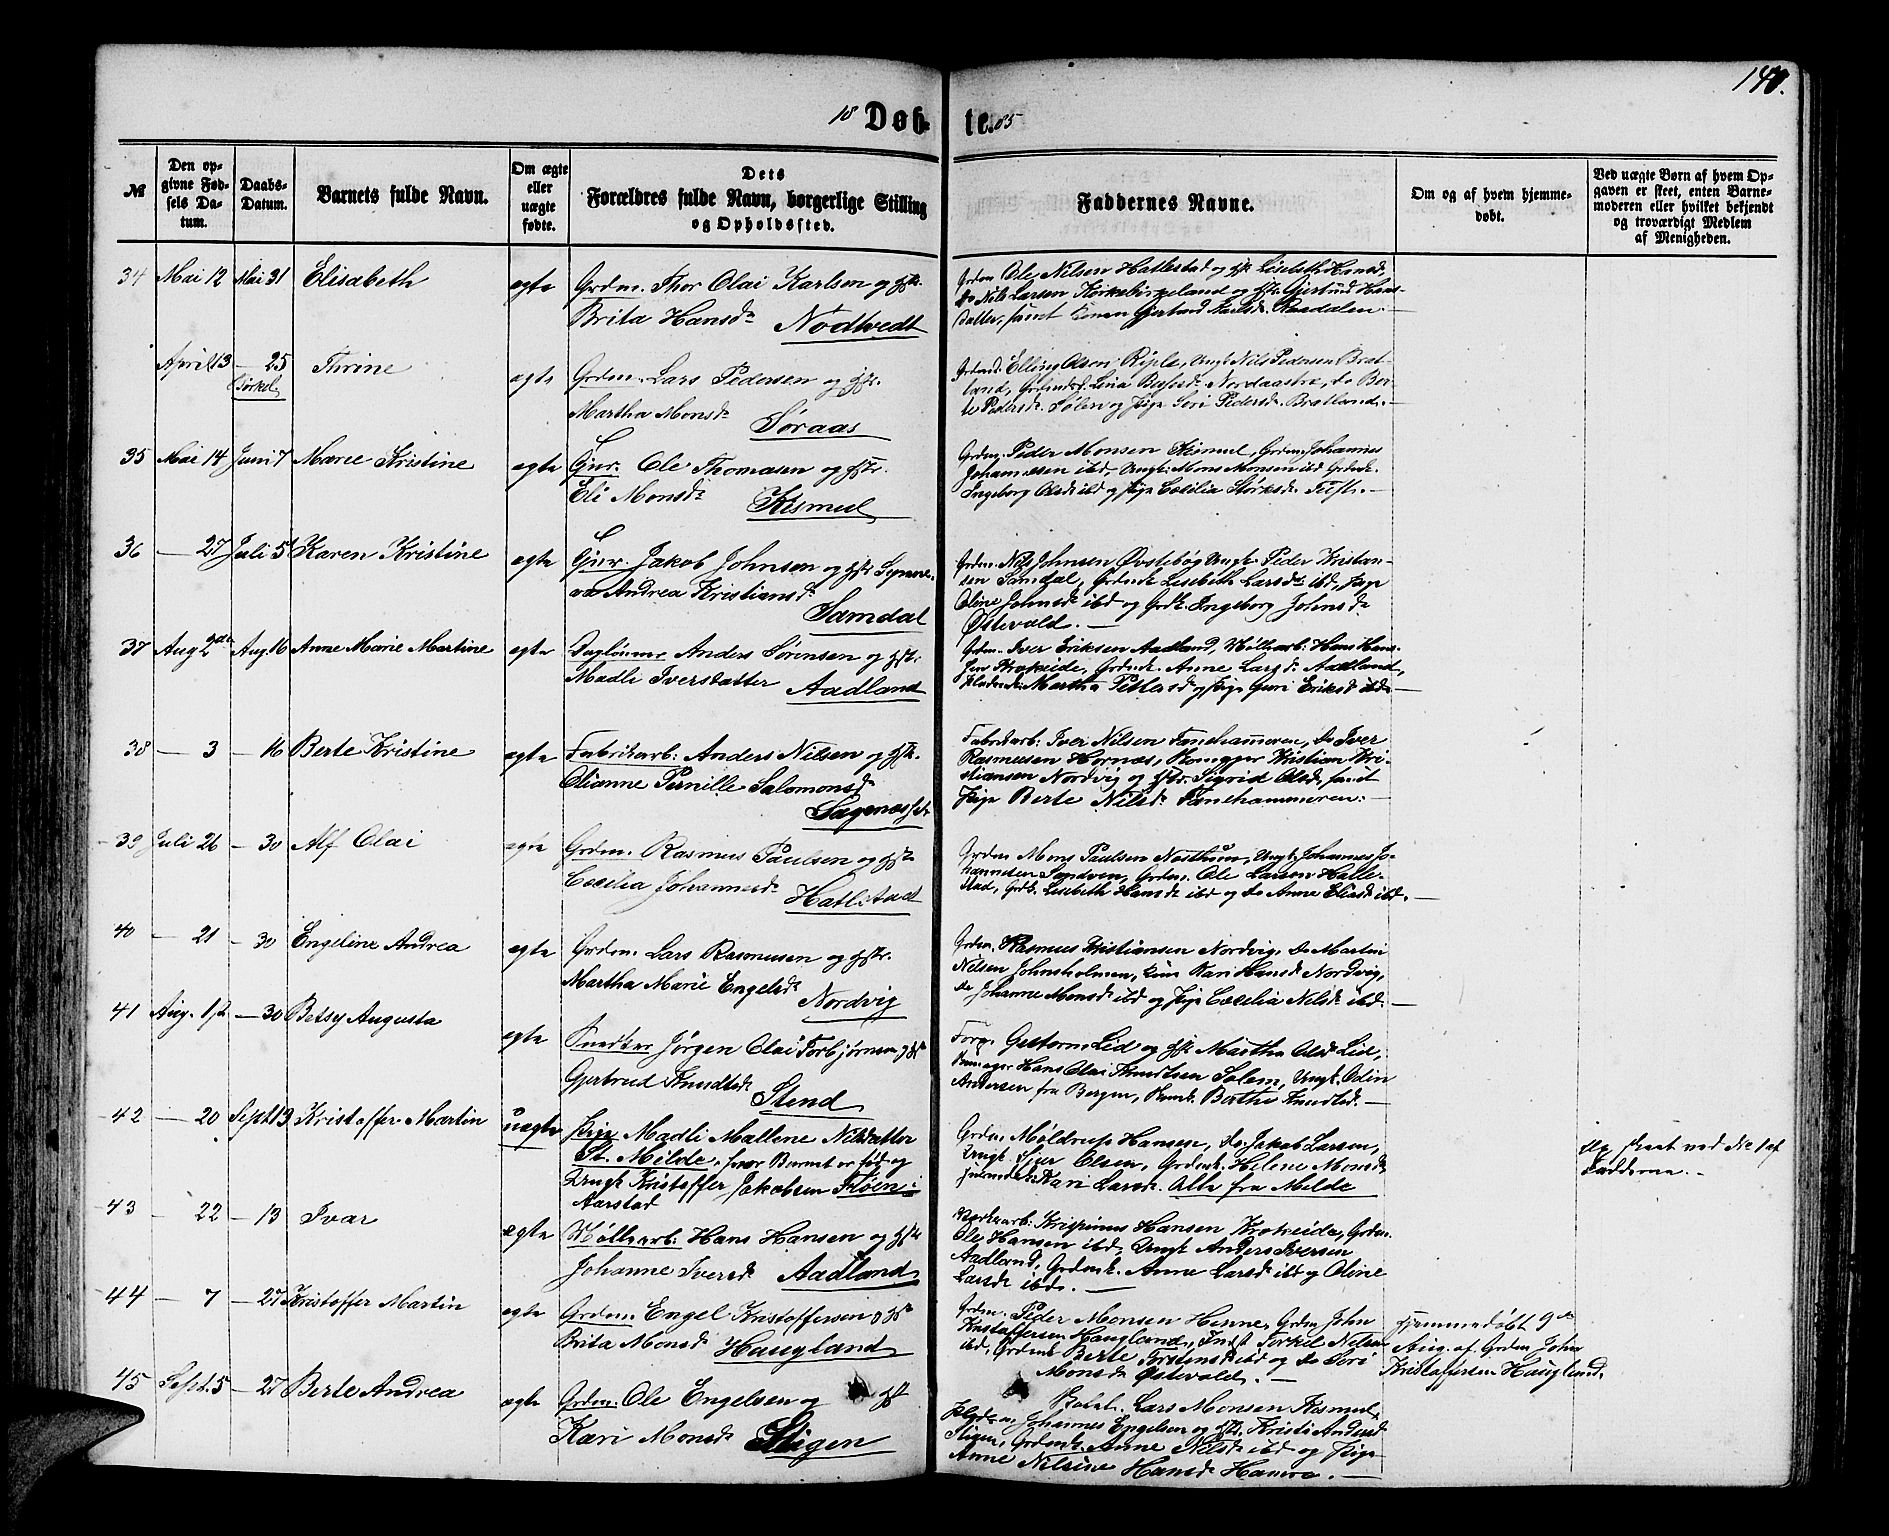 140.
18 Døb-te. 85
№
Den op-
givne Fød-
sels Da-
tum.
Daabs-
Datum.
Barnets fulde Navn.
Om ægte
eller
uægte
fødte.
Dets
Forældres fulde Navn, borgerlige Stilling
og Opholdssted.
Faddernes Navne.
Om og af hvem hjemme-
døbt.
Ved uægte Børn af hvem Op-
gaven er skeet, enten Barne-
moderen eller hvilket bekjendt
og troværdigt Medlem
af Menigheden.
34 Mai 12 Mai 31 Elisabeth ægte Grdm. Thor Olai Karlsen og Hstr.
Brita Hansdr Nødtvedt
Grdm. Ole Nilsen Hatlestad og Hstr Lisebeth Hansd,
Do Nils Larsen Kirkebirkeland og Hstr. Gjertrud Hans-
datter, samt Gjertrud Nielsdr.
April 13 — 25 Thrine ægte Grdm. Lars Pedersen og Hstr.
Torkel
Martha Monsdr Søraas
Grdmd. Elling Olsen Riple, Ungk. Nils Pedersen Brat-
land, Nordaastræ, do Ber-
te Pedersdr. og Pige Sori Pedersdr. Bratland. —
35 Mai 14 Juni 7 Marie Kristine ægte Gjnr. Ole Thomasen og Hstr.
Eli Monsdr Kismul
Grdm. Peder Monsen Kismul, Grdm. Johannes
Johannesen ibd, Ungk. Mons Monsen ibd Grdmk.
Ingeborg Olsdr ibd og Pige Cæcilia Størksdr. —
36 — 27 Juli 5 Karen Kristine ægte Gjnr. Jakob Johnsen og Hstr Synne-
va Andrea Kristiansdr
Samdal
Grdm. Nils Johnsen Øvstebø, Ungk. Peder Kristian-
sen Samdal, Grdmk. Lisebeth Larsdr ibd, Pige
Oline Johnsdr ibd og Grdk. Ingeborg Johnsdr
Østevold. —
37 Aug 2den Aug. 16 Anne Marie Martine ægte Daglønner Anders Sørensen og Hstr
Madli Iversdatter Aadland
Grdm. Iver Eriksen Aadland, Møllearb: Hans Han-
sen Krokeide, Grdmk. Anne Larsdr Aadland,
Martha og Pige Guri Eriksdr ibd —
38 — 3 — 16 Berte Kristine ægte Fabrikarb: Anders Nilsen og Hstr.
Olianne Pernille Salomonsdr
Fabrikarb: Iver Nilsen Fanehammeren, Do Iver
Rasmusen Hornæs, Kristian Kri-
stiansen Nordvig og Hstr. Sigrid Olsdr, samt
Pige Berte Nilsdr Fanehammeren. —
39 Juli 26 — 30 Alf Olai ægte Grdm. Rasmus Paulsen og Hstr
Cecilia Johannesdr Hatlestad
Grdm Mons Paulsen Nøsthun, Ungk: Johannes Jo-
hannesen Sandven, Grdm. Ole Larsen Hatle-
stad, Grdk. Lisebeth Hansdr ibd og Do Anne Eliasdr ibd. —
40 — 21 — 30 Engeline Andrea ægte Grdm. Lars Rasmusen og Hstr.
Martha Marie Engelsdr
Nordvig
Grdm. Rasmus Kristiansen Nordvig, Do Martin
Nilsen Johnsholmen, Kari Hansdr Nordvig,
do Johanne Monsdr ibd og Pige Cæcilia Nilsdr ibd. —
41 Aug. 1st. — 30 Betsy Augusta ægte Snedker Jørgen Olai Torbjørnsen og Hstr
Gjertrud Knudtsdr
Stend
Lid og Hstr Martha Olsdr Lid,
Hans Olai Knudtsen Salem, Ungk. Odin
Andersen fra Bergen, Berthe Knudtsdr. —
42 — 20 Sept 13 Kristoffer Martin uægte Pige Madli Mallene Nilsdatter
St. Milde, hvor Barnet er født og
Ungk Kristoffer Jakobsen Fløen i
Aarstad
Grdm. Møldrup Hansen, do Jakob Larsen,
Ungk. Sjur Olsen, Grdmk. Helene Monsdr
Kari Larsdr. Alle fra Milde
ved No 1 af
Fadderne. —
43 — 22 — 13 Ivar ægte Møllearb: Hans Hansen og Hstr
Johanne Iversdr Aadland
Krispinus Hansen Krokeide, Grdm.
Ole Hansen ibd, Ungk Anders Iversen
Aadland, Grdmk. Anne Larsdr ibd og Oline
Larsdr ibd. —
44 — 7 — 27 Kristoffer Martin ægte Grdm. Engel Kristoffersen og Hstr
Brita Monsdr Haugland
Grdm. Peder Monsen Hinne, Grdm John
Kristoffersen Haugland, Torkel Nilsen
ibd, Grdmk Berte Torstensdr ibd og Do Sori
Monsdr Østevold. —
Hjemmedøbt 9de
Aug. af Grdm John
Kristoffersen Haugland.
45 Sept. 5 — 27 Berte Andrea ægte Grdm. Ole Engelsen og Hstr
Kari Monsdr Stigen
Lars Monsen Kismul,
Johannes Engelsen og Hstr. Kristi Andersdr
Stigen, Grdmk. Anne Nilsdr ibd og Pige
Anne Nilsine Hansdr Hamre. —